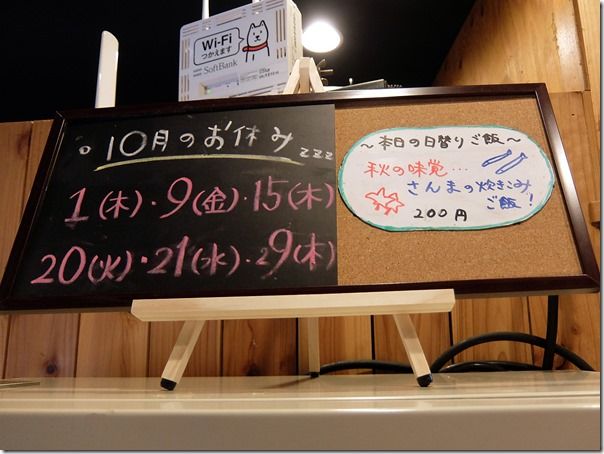 Wi-Fi
つかえます
SoftBank
10月のお休みzzz
1(木)・9(金)・15(木)
20(火)・21(水)・29(木)
～本日の日替りご飯～
秋の味覚…
さんまの炊きこみ
ご飯!
200円